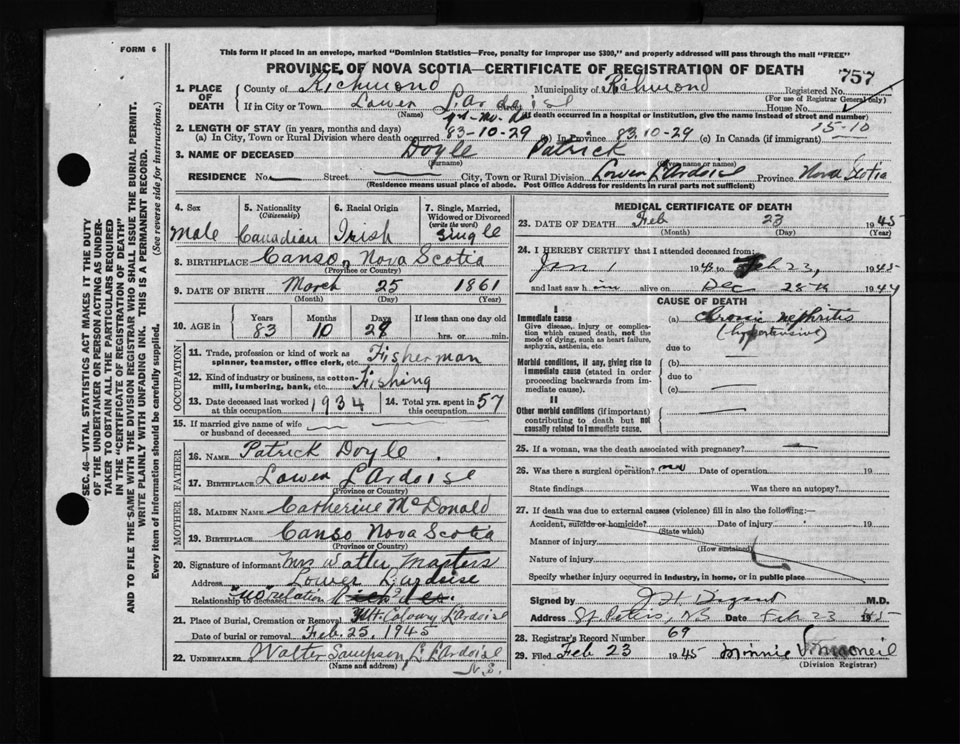 FORM 6
This form if placed in an envelope, marked "Dominion Statistics—Free, penalty for improper use $300," and properly addressed will pass through the mail "FREE"
PROVINCE OF NOVA SCOTIA—CERTIFICATE OF REGISTRATION OF DEATH
757
1. PLACE OF DEATH
County of Richmond Municipality of Richmond Registered No.
(For use of Registrar General only)
If in City or Town Lower L'Ardoise House No.
(Name) If death occurred in a hospital or institution, give the name instead of street and number)
2. LENGTH OF STAY (in years, months and days) 15-10
(a) In City, Town or Rural Division where death occurred 83-10-29 (b) In Province 83.10-29 (c) In Canada (if immigrant)
3. NAME OF DECEASED Doyle Patrick
(Surname) (Given name or names)
RESIDENCE No. Street City, Town or Rural Division Lower L'Ardoise Province Nova Scotia
(Residence means usual place of abode. Post Office Address for residents in rural parts not sufficient)
4. Sex 5. Nationality (Citizenship) 6. Racial Origin 7. Single, Married, Widowed or Divorced (write the word)
Male Canadian Irish Single
8. BIRTHPLACE Canso, Nova Scotia
(Province or Country)
9. DATE OF BIRTH March 25 1861
(Month) (Day) (Year)
10. AGE in Years Months Days If less than one day old
83 10 29 hrs. or min.
OCCUPATION
11. Trade, profession or kind of work as spinner, teamster, office clerk, etc. Fisherman
12. Kind of industry or business, as cotton-mill, lumbering, bank, etc. Fishing
13. Date deceased last worked at this occupation 1934 14. Total yrs. spent in this occupation 57
15. If married give name of wife or husband of deceased
FATHER
16. NAME Patrick Doyle
17. BIRTHPLACE Lower L'Ardoise
(Province or Country)
MOTHER
18. MAIDEN NAME Catherine McDonald
19. BIRTHPLACE Canso Nova Scotia
(Province or Country)
20. Signature of informant Mrs Walter Masters
Address Lower L'Ardoise
Relationship to deceased "no" relation
21. Place of Burial, Cremation or Removal Mt. Calvary L'Ardoise
Date of burial or removal Feb. 25, 1945
22. UNDERTAKER Walter Sampson L. L'Ardoise
(Name and address) N.S.
MEDICAL CERTIFICATE OF DEATH
23. DATE OF DEATH Feb 23 1945
(Month) (Day) (Year)
24. I HEREBY CERTIFY that I attended deceased from:
Jan 1 1945 to Feb 23, 1945
and last saw him alive on Dec 28th 1944
CAUSE OF DEATH
I
Immediate cause
Give disease, injury or complication which caused death, not the mode of dying, such as heart failure, asphyxia, asthenia, etc.
(a) Chronic nephritis
(hypertensive)
due to
Morbid conditions, if any, giving rise to immediate cause (stated in order proceeding backwards from immediate cause).
(b)
due to
(c)
II
Other morbid conditions (if important) contributing to death but not causally related to immediate cause.
25. If a woman, was the death associated with pregnancy?
26. Was there a surgical operation? no Date of operation. 19
State findings Was there an autopsy?
27. If death was due to external causes (violence) fill in also the following:—
Accident, suicide or homicide? Date of injury 19
(State which)
Manner of injury
(How sustained)
Nature of injury
Specify whether injury occurred in industry, in home, or in public place
Signed by M.D.
Address St. Peters, NS Date Feb 23 1945
28. Registrar's Record Number 69
29. Filed Feb 23 1945 Minnie
(Division Registrar)
SEC. 46—VITAL STATISTICS ACT MAKES IT THE DUTY
OF THE UNDERTAKER OR PERSON ACTING AS UNDER-
TAKER TO OBTAIN ALL THE PARTICULARS REQUIRED
IN THE "CERTIFICATE OF REGISTRATION OF DEATH"
AND TO FILE THE SAME WITH THE DIVISION REGISTRAR WHO SHALL ISSUE THE BURIAL PERMIT.
WRITE PLAINLY WITH UNFADING INK. THIS IS A PERMANENT RECORD.
Every item of information should be carefully supplied. (See reverse side for instructions.)